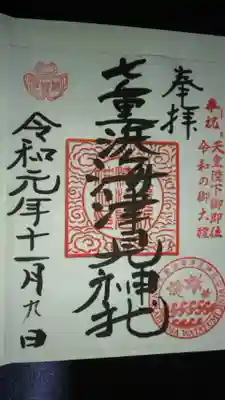 奉拝
奉祝 天皇陛下御即位
令和の御大禮
七重浜海津見神社
令和元年十一月九日